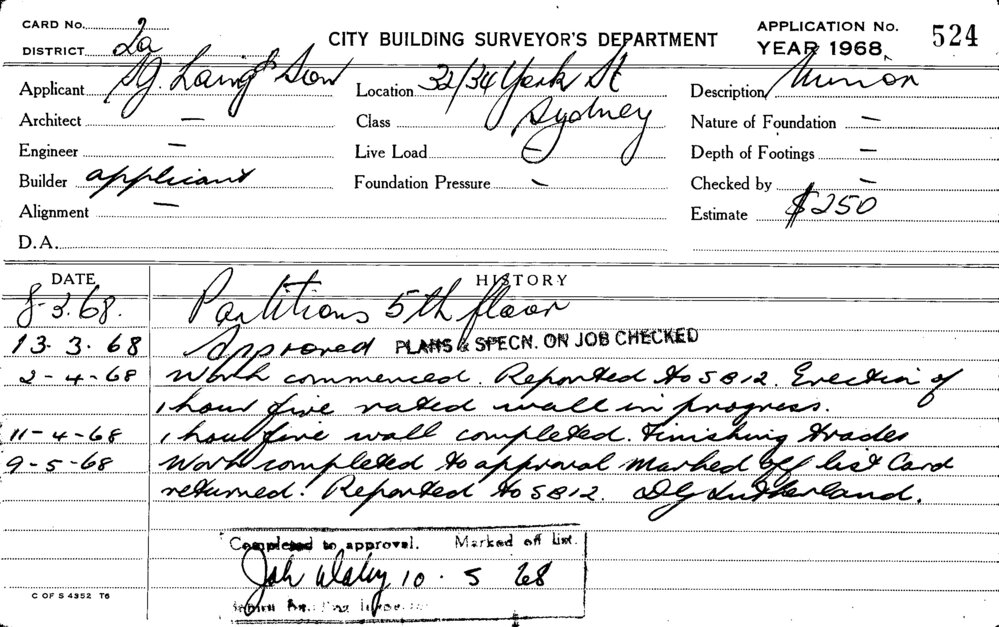 CARD No.
DISTRICT 2a
CITY BUILDING SURVEYOR'S DEPARTMENT
APPLICATION No.
YEAR 1968
524
Applicant Laing & Son
Location 32/34 York St
Sydney
Description Minor
Architect —
Class
Nature of Foundation —
Engineer —
Live Load —
Depth of Footings —
Builder applicant
Foundation Pressure -
Checked by —
Alignment —
Estimate $250
D.A.
DATE
HISTORY
8-3.68. Partitions 5th floor
13.3.68 Approved PLANS & SPECN. ON JOB CHECKED
2-4-68 Work commenced. Reported to SB12. Erection of
1 hour fire rated wall in progress.
11-4-68 1 hour fire wall completed. Finishing trades
9-5-68 Work completed to approval marked off list Card
returned. Reported to SB12. DG Sutherland.
Completed to approval. Marked off list.
10 . 5 68
C OF S 4352 T6